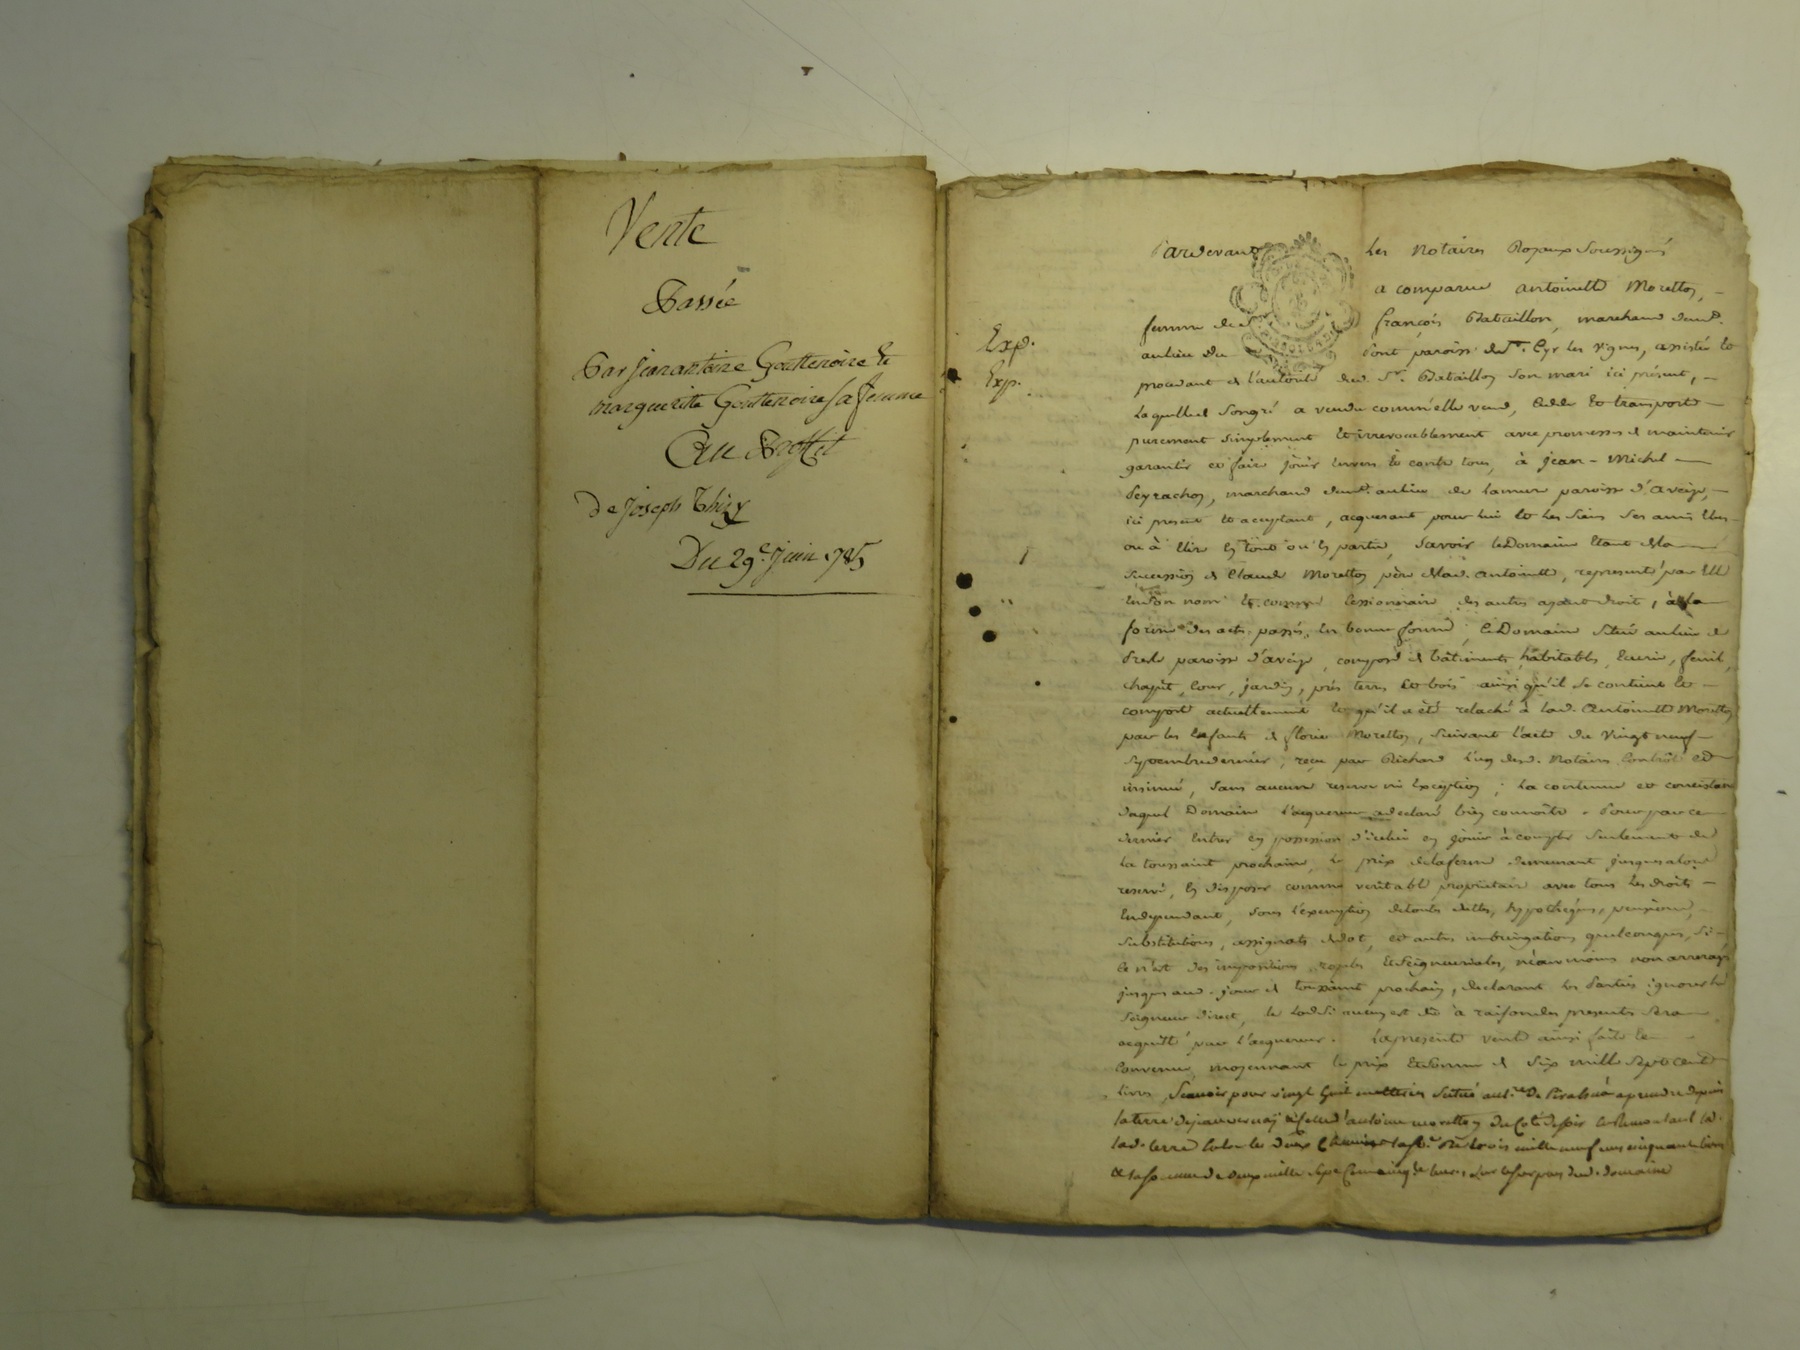 Vente
Passée
Par jean antoine Gouttenoire et
marguerite Gouttenoire sa femme
Au Proffit
de joseph Thiry
Du 29e. juin 1785
Exp.
Exp.
Pardevant les Notaires Royaux Soussignés
a comparu antoinette Moretton,
femme de françois Bataillon, marchand demt.
au lieu du pont paroisse de St. Cyr les vignes, assistée et
procedant de l'autorité dud. Sr. Bataillon son mari ici présent,
laquelle de son gré a vendu comm'elle vend, cede et transporte
purement simplement et irrevocablement avec promesses de maintenir
garantir et faire jouir envers et contre tous, à jean-Michel
peyrachon, marchand demt. au lieu de lamure paroisse d'aveize,
ici present et acceptant, acquerant pour lui et les siens ses amis élus
ou à élire en tout ou en partie, savoir le Domaine étant de la
succession de Claude Moretton père de lad. antoinette, représenté par elle
en son nom et comme cessionnaire des autres ayant droit, à la
forme des actes passés en bonne forme, le Domaine situé au lieu de
paroisse d'aveize, composé de bâtiments habitables, écurie, fenil,
chapit, cour, jardin, prés terres et bois ainsi qu'il se contient et
comporte actuellement et qu'il a été relaché à lad. Antoinette Moretton
par les enfants de florie Moretton, suivant l'acte du vingt neuf
septembre dernier, reçu par Richard l'un desd. Notaires Controlé et
insinué, sans aucune reserve ni exception; la contenue et consistance
duquel Domaine l'acquereur a declaré bien connoître. Pour par ce
dernier entrer en possession d'icelui en jouir à compter seulement de
la toussaint prochaine, le prix de la ferme demeurant jusques alors
reservé, en disposer comme veritable propriétaire avec tous les droits
en dependant, sous l'exemption de toutes dettes, hypotheques, pensions,
substitutions, assignats de dot, et autres quelconques, si
ce n'est des impositions royales et seigneuriales, néanmoins non arreragés
jusques aud. jour de toussaint prochain, declarant les parties ignorer le
seigneur direct, le lod si aucun est dû à raison des presentes sera
acquitté par l'acquereur. La presente vente ainsi faite et
convenue moyennant le prix et somme de six mille sept cent
livres, Scavoir pour vingt huit metterées situés au lieu de à prendre depuis
la terre de jean et celle d'antoine moretton du coté de soir
lad. terre entre les deux chemins la se. de trois mille neuf cens cinquante livres
& la somme de deux mille sept cens cinqte. livres sur le surplus dud. domaine